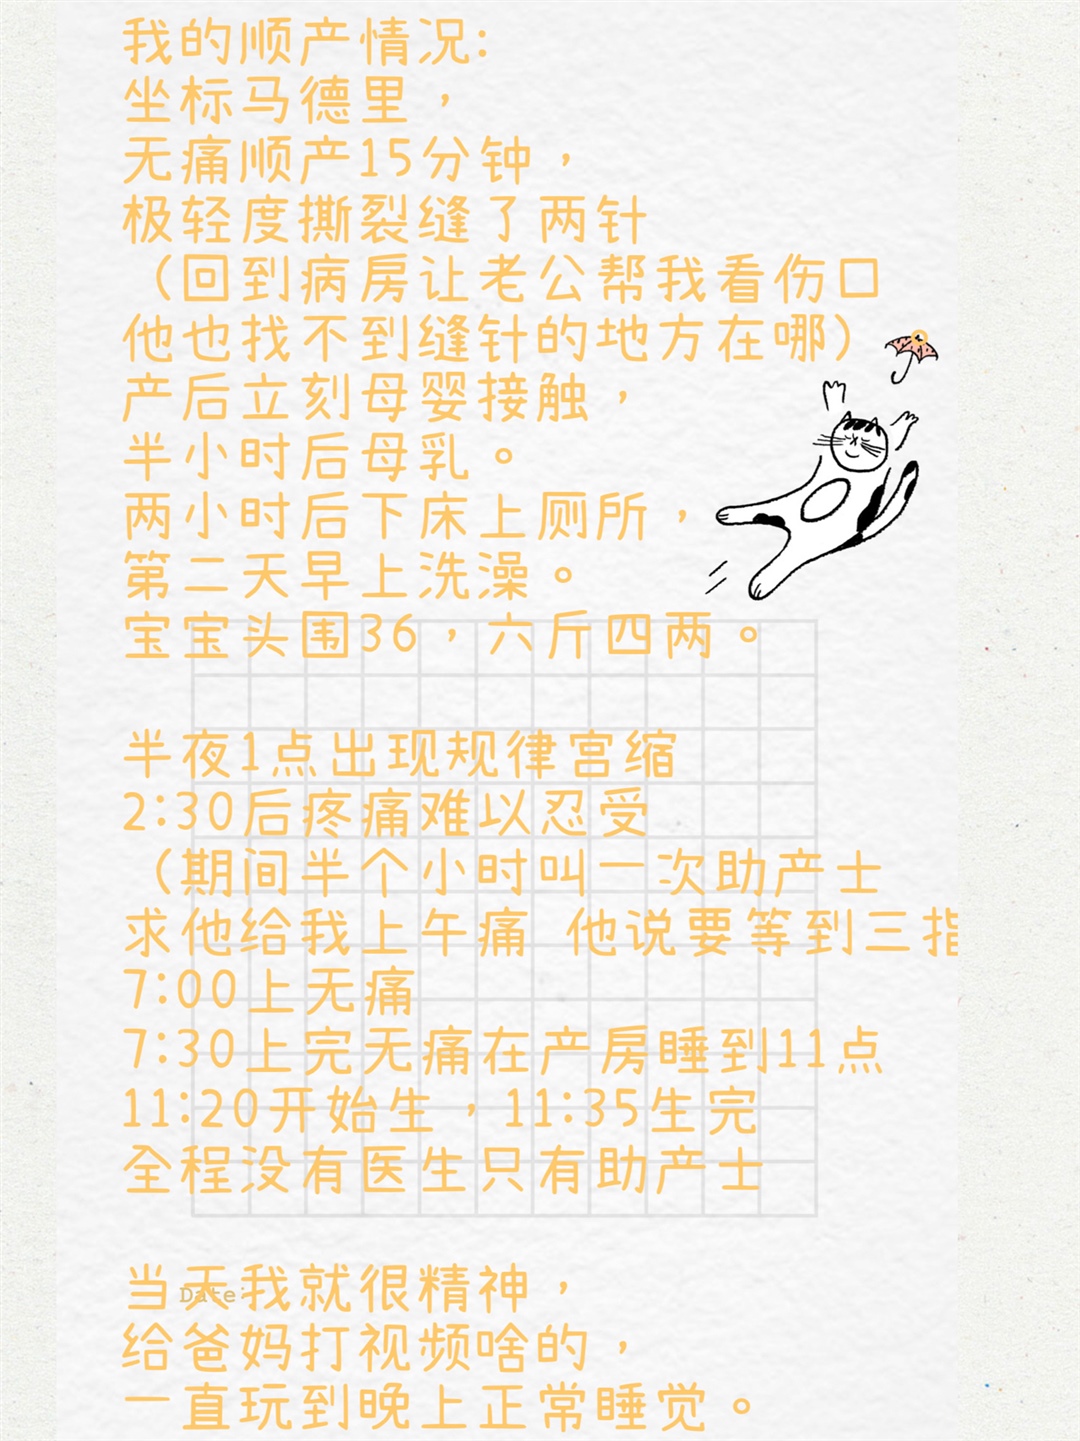 我的顺产情况:
坐标马德里，
无痛顺产15分钟，
极轻度撕裂缝了两针
（回到病房让老公帮我看伤口
他也找不到缝针的地方在哪）
产后立刻母婴接触，
半小时后母乳。
两小时后下床上厕所，
第二天早上洗澡。
宝宝头围36，六斤四两。
半夜1点出现规律宫缩
2:30后疼痛难以忍受
（期间半个小时叫一次助产士
求他给我上午痛 他说要等到三指
7:00上无痛
7:30上完无痛在产房睡到11点
11:20开始生，11:35生完
全程没有医生只有助产士
Date:
当天我就很精神，
给爸妈打视频啥的，
一直玩到晚上正常睡觉。